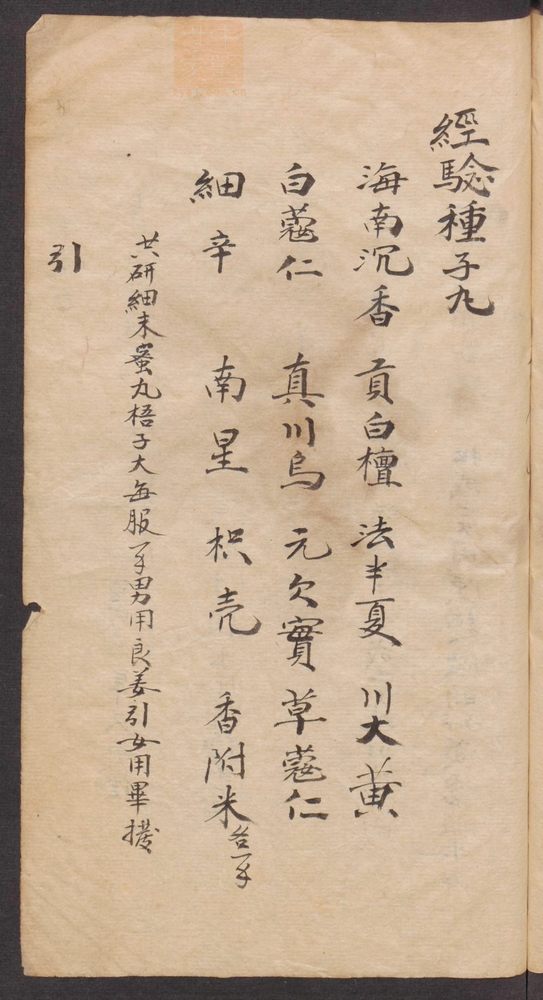 經驗種子丸
海南沉香 貢白檀 法半夏 川大黄
白蔻仁 真川烏 元欠實 草蔻仁
細辛 南星 枳壳 香附米各一
共研細末蜜丸梧子大每服一 男用良姜引女用畢撥
引